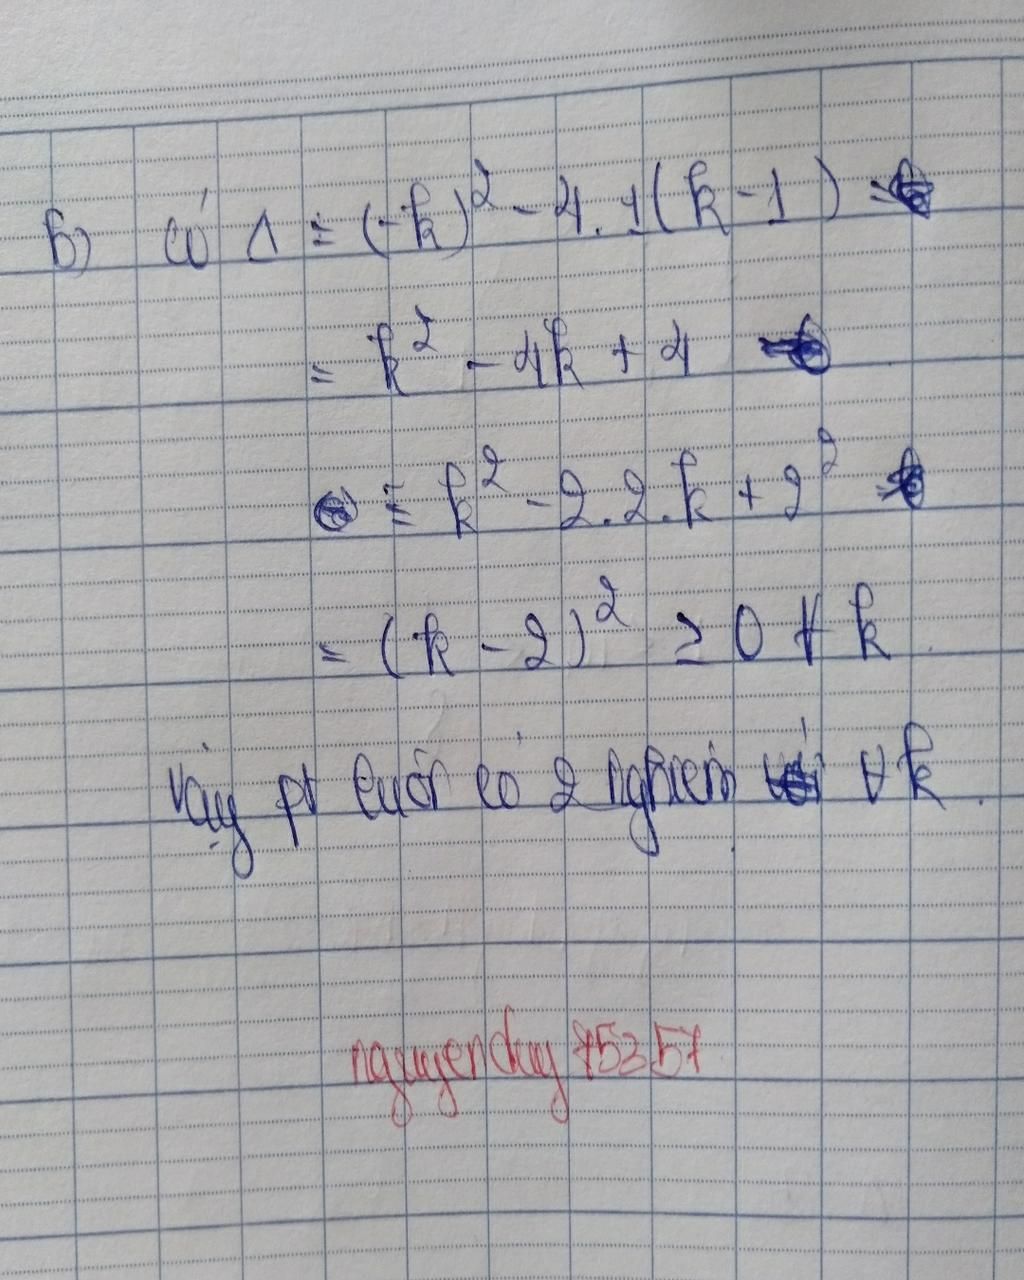 b) có Δ = (-k)² - 4.1(k-1)
= k² - 4k + 4
= k² - 2.2.k + 2²
= (k-2)² ≥ 0 ∀ k
Vậy pt luôn có 2 nghiệm với ∀ k.
nguyenduy75357